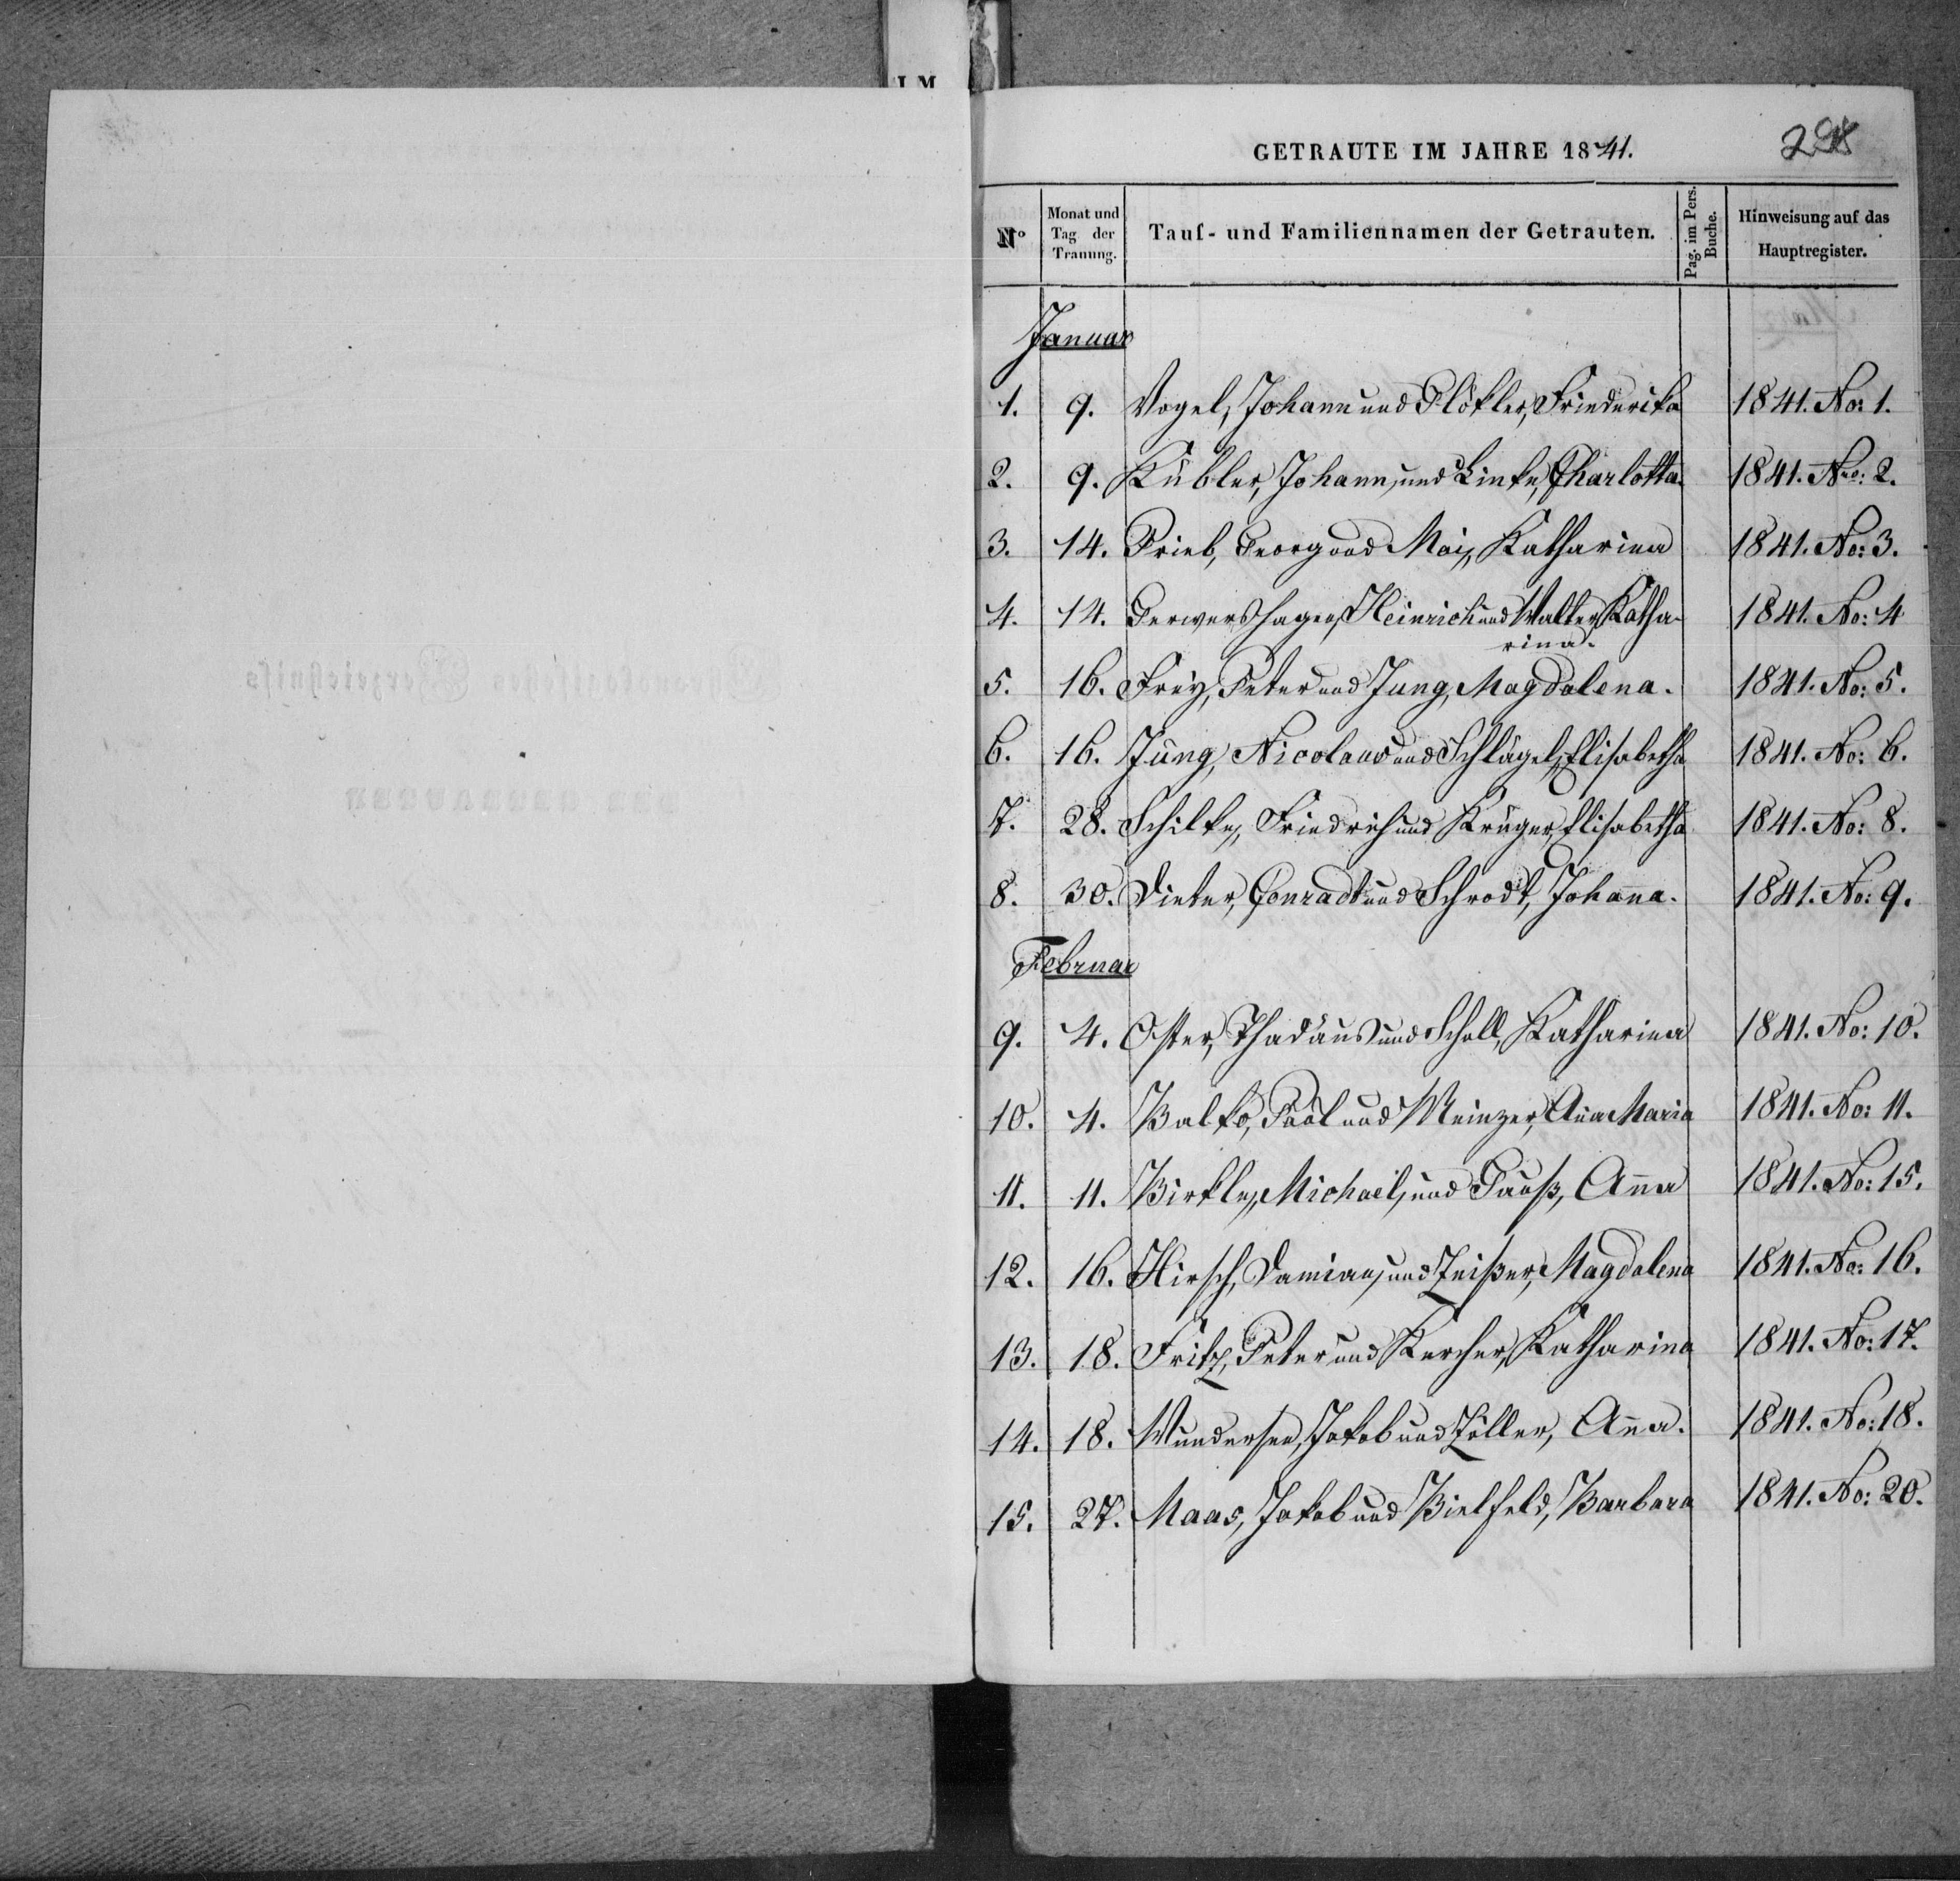 GETRAUTE IM JAHRE 1841.
No
Monat und Tag der Trauung.
Tauf- und Familiennamen der Getrauten.
Pag. im Pers. Buche.
Hinweisung auf das Hauptregister.
Januar
1. 9. Vogel, Johann und Flökler, Friederika 1841. No: 1.
2. 9. Kübler, Johann, und Linke, Charlotta. 1841. Nro: 2.
3. 14. Prieb, Georg und Mai, Katharina 1841. No: 3.
4. 14. Gerwershagen, Heinrich und Walter, Katha- 1841. No: 4
rina.
5. 16. Frey, Peter und Jung, Magdalena. 1841. No: 5.
6. 16. Jung, Nicolaus und Schlägel, Elisabetha 1841. No: 6.
7. 28. Schilke, Friedrich und Krüger, Elisabetha 1841. No: 8.
8. 30. Dieter, Conradt und Schrodt, Johanna. 1841. No: 9.
Februar
9. 4. Oster, Thadäus und Scholl, Katharina 1841. No: 10.
10. 4. Balko, Paul und Meinzer, Anna Maria 1841. No: 11.
11. 11. Birkle, Michael, und Gauß, Anna 1841. No: 15.
12. 16. Hirsch, Damian, und Zeißer, Magdalena 1841. No: 16.
13. 18. Fritz, Peter und Kercher, Katharina 1841. No: 17.
14. 18. Wundersee, Jakob und Zöller, Anna. 1841. No: 18.
15. 27. Maas, Jakob und Bielfeld, Barbara 1841. No: 20.